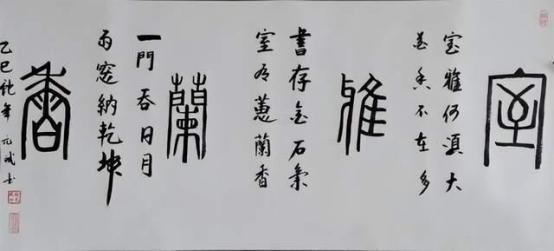 室
室雅何須大
花香不在多
雅
書存金石氣
室有蕙蘭香
蘭
一門吞日月
两窓納乾坤
香
乙巳蛇年 元